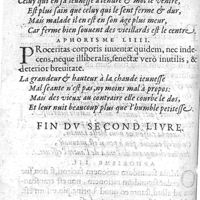 Celuy qui en sa ieunesse a tendre & mol le ventre,
Est plus sain que celuy qui le sent ferme & dur,
Mais malade il en est en son âge plus meur,
Car ferme bien souuent des vieillard z est le centre.
APHORISME LIIII.
PRoceritas corporis iuuentæ quidem, nec inde-
cens, neque illiberalis, senectæ verò inutilis, &
deterior breuitate.
La grandeur & hauteur à la chaude ieunesse
Mal seante n'est pas, ny moins mal à propos:
Mais des vieux au contraire elle courbe le dos,
Et leur nuit beaucoup plus que l'humble petitesse.
FIN DV SECOND LIVRE.